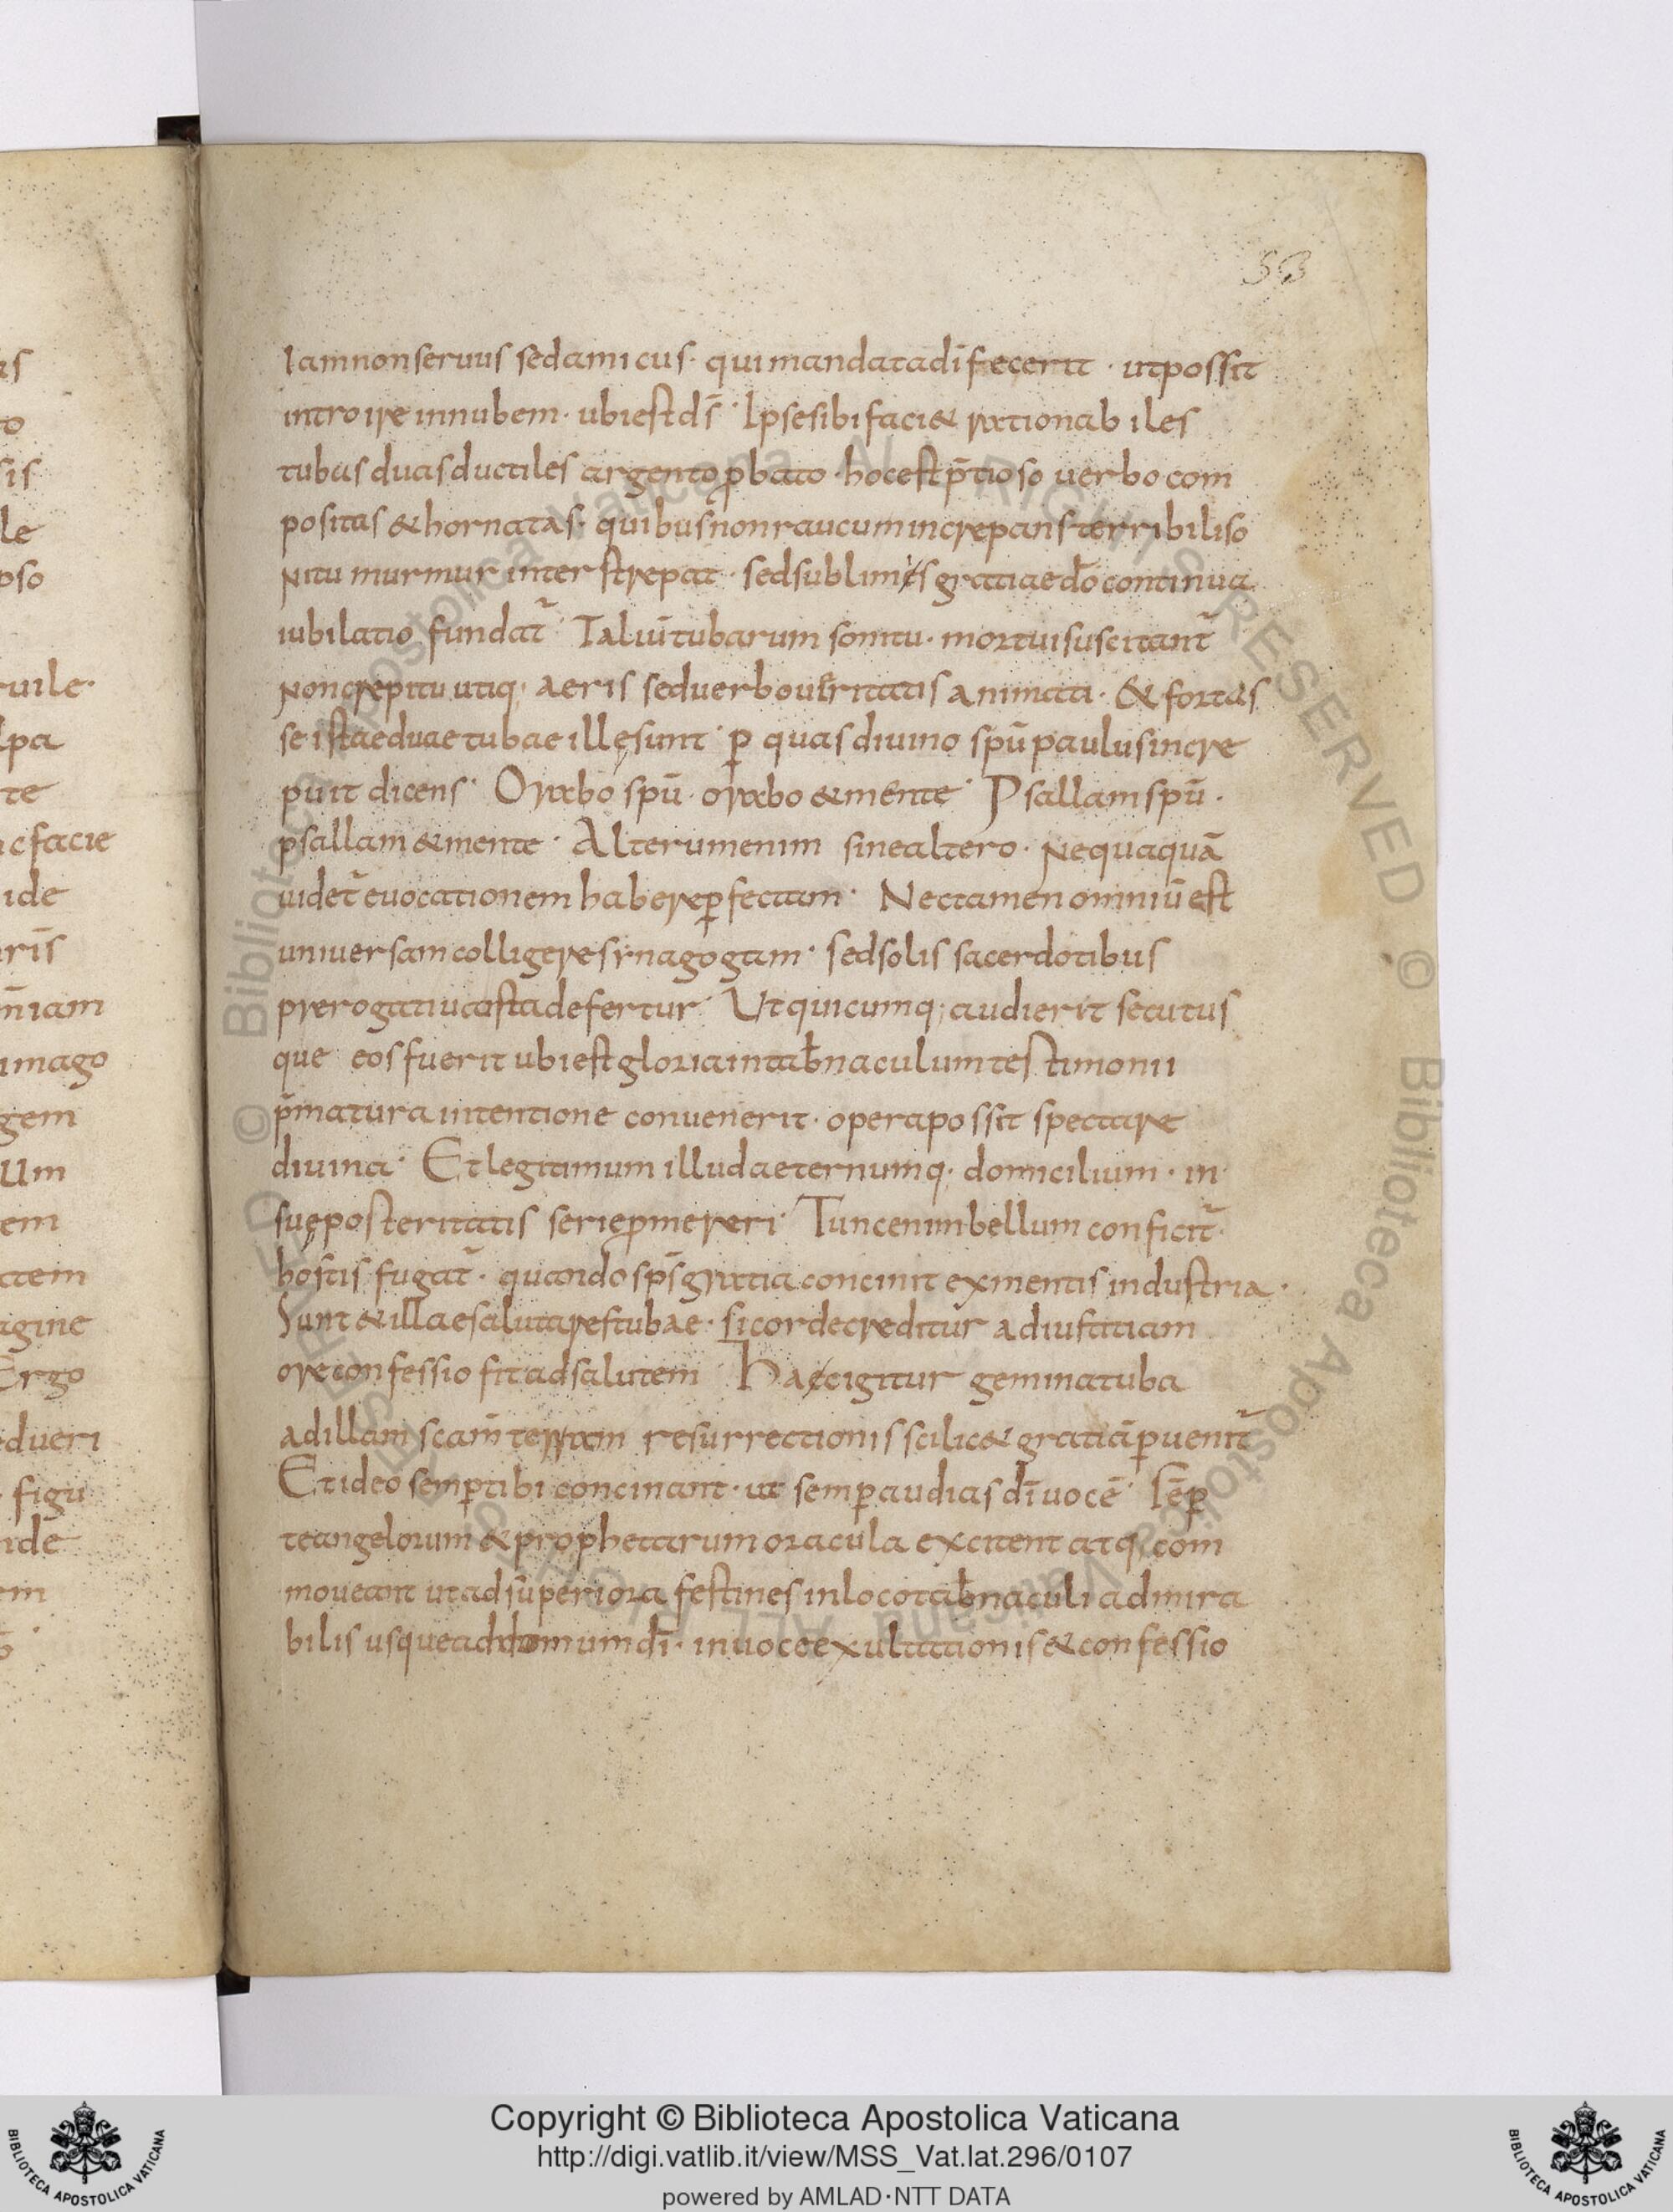 53
Iam non seruus sed amicus· qui mandata dī fecerit · ut possit
introire in nubem· ubi est ds̄ · Ipse sibi faci& rationabiles
tubas duas ductiles argento ꝓbato · hoc est p̄tioso uerbo com
positas & hornatas· quibus non raucum increpans terribili so
nitu murmur inter strepat · sed sublimes gratiae dō continua
iubilatio fundat̄ · Taliū tubarum sonitu· mortui suscitant̄
Non crepitu utiq; aeris sed uerbo ueritatis animati · & fortas
se istae duae tubae illę sunt · ꝑ quas diuino spū paulus incre
puit dicens · Orabo spū · orabo & mente · Psallam spū ·
psallam & mente · Alterum enim sine altero · Nequaquā
uidet̄ euocationem habere ꝑfectam · Nec tamen omniū est
uniuersam colligere synagogam · sed solis sacerdotibus
prerogatiua ista defertur · Ut quicumq; audierit secutus
que eos fuerit ubi est gloria in tab̄naculum testimonii
p̄matura intentione conuenerit · opera possit spectare
diuina · Et legitimum illud aeternumq· domicilium · in
suę posteritatis serie ꝓmereri · Tunc enim bellum conficit̄·
hostis fugat̄ · quando sps̄ gratia concinit ex mentis industria ·
Sunt & illae salutares tubae · si corde creditur ad iustitiam
ore confessio fit ad salutem · Haec igitur gemina tuba
ad illam scam̄ terram resurrectionis scilic& gratiā ꝑuenit̄
Et ideo semꝑ tibi concinant · ut semꝑ audias dī uocē · Sēꝑ
te angelorum & prophetarum oracula excitent atq; com
moueant ut ad superiora festines in loco tab̄naculi admira
bilis usque ad domum dī · in uoce exultationis & confessio
Copyright © Biblioteca Apostolica Vaticana
http://digi.vatlib.it/view/MSS_Vat.lat.296/0107
powered by AMLAD·NTT DATA
BIBLIOTECA APOSTOLICA VATICANA
BIBLIOTECA APOSTOLICA VATICANA